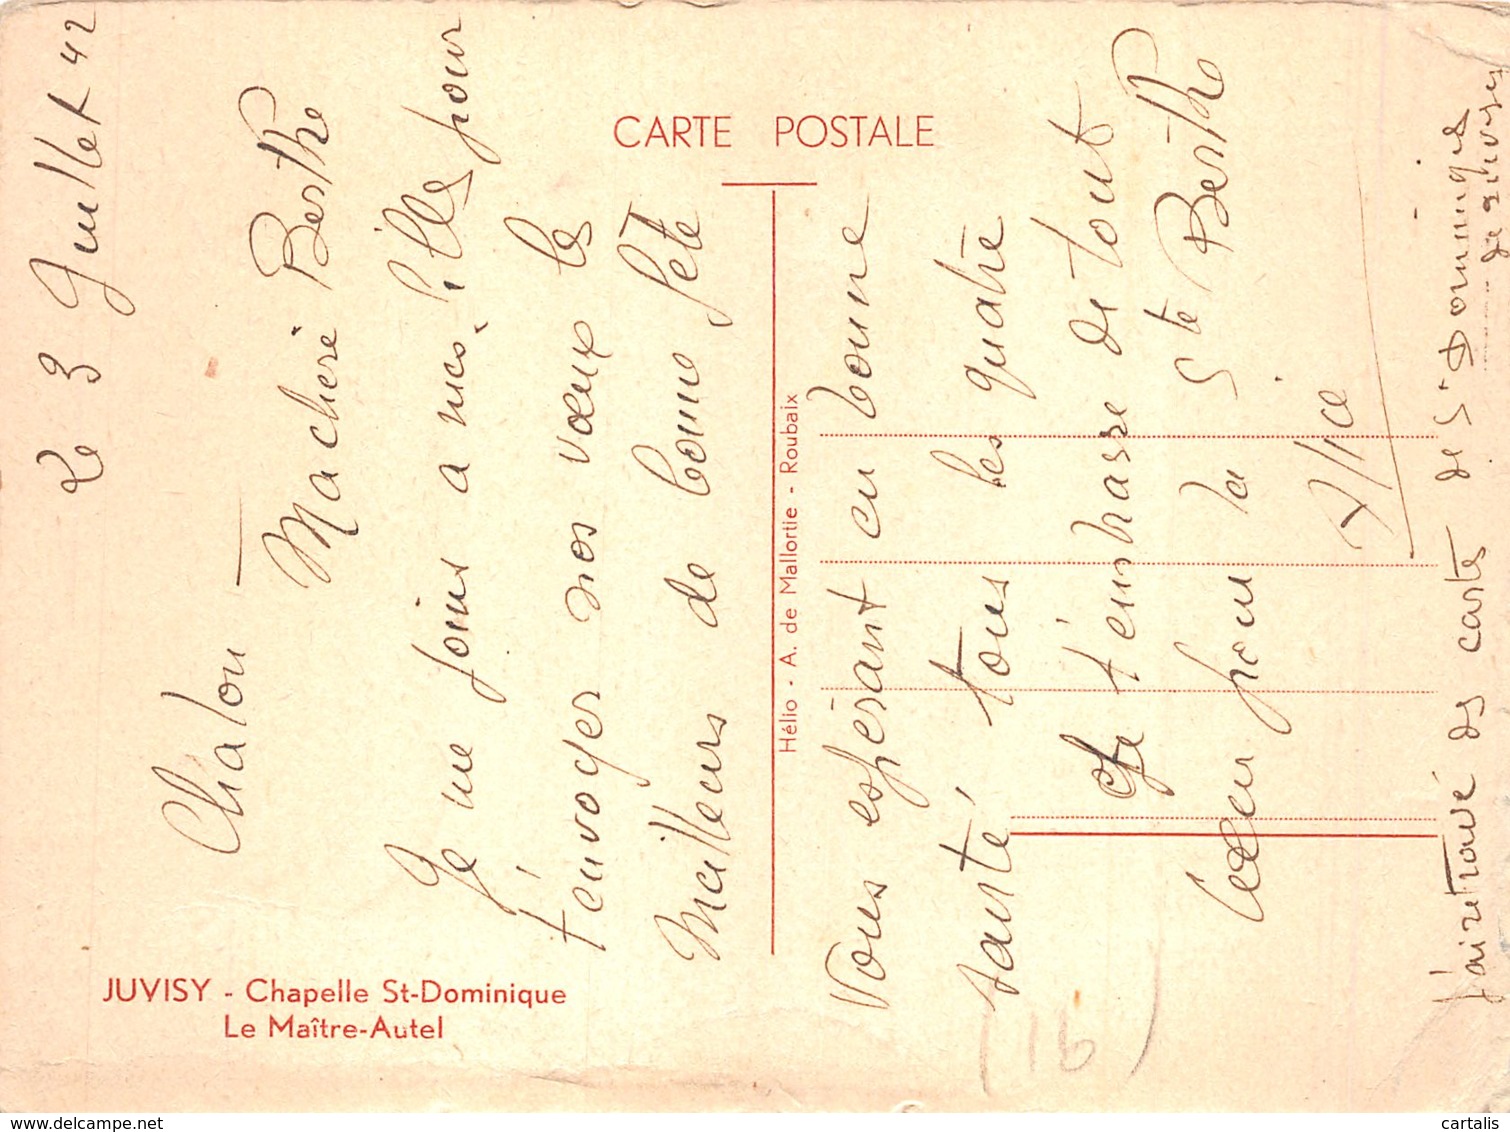 CARTE POSTALE
JUVISY - Chapelle St-Dominique
Le Maître-Autel
Hélio - A. de Mallortie - Roubaix
Le 3 Juillet 42
Chalon
Ma cheré Berthe
Je me joins a mes filles pour
t'envoyer nos vœux les
Meilleurs de bonne fête
Vous espérant en bonne
santé, tous les quatre
Je t'embrasse de tout
Cœur pour la Ste Berthe
Alice
J'ai retrouvé ds cartes de St Dominique
de
(16)
delcampe.net
cartalis